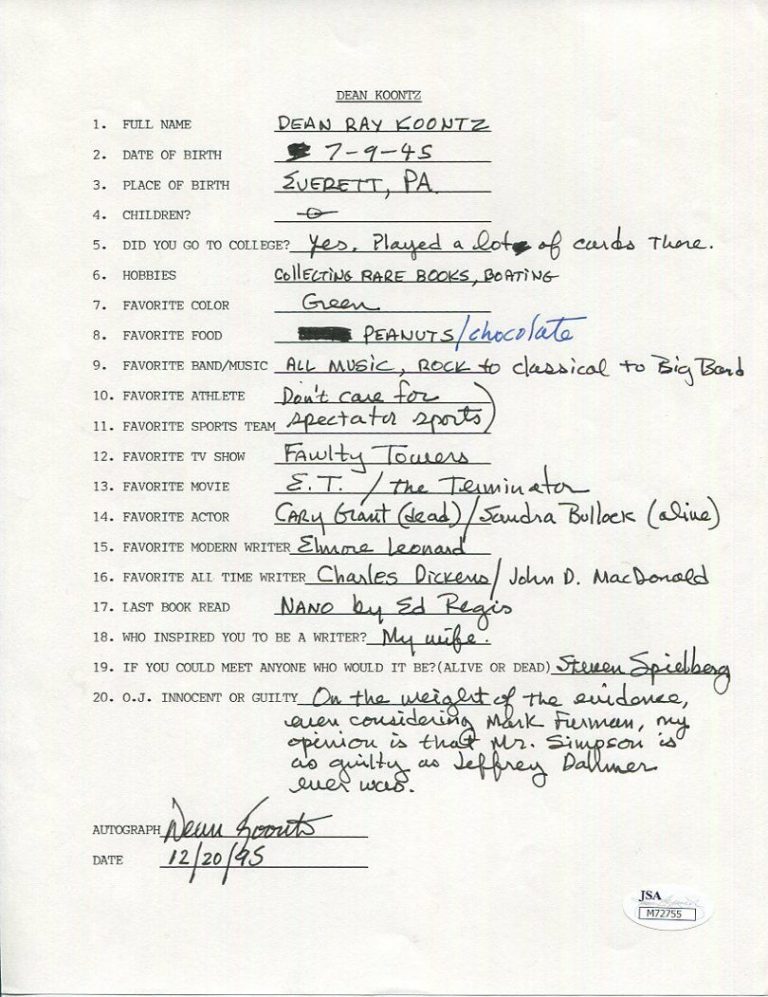 DEAN KOONTZ
1. FULL NAME DEAN RAY KOONTZ
2. DATE OF BIRTH 7-9-45
3. PLACE OF BIRTH EVERETT, PA.
4. CHILDREN? 0
5. DID YOU GO TO COLLEGE? Yes. Played a lot of cards there.
6. HOBBIES COLLECTING RARE BOOKS, BOATING
7. FAVORITE COLOR Green
8. FAVORITE FOOD PEANUTS/chocolate
9. FAVORITE BAND/MUSIC ALL MUSIC, ROCK to classical to Big Band
10. FAVORITE ATHLETE Don't care for
11. FAVORITE SPORTS TEAM spectator sports)
12. FAVORITE TV SHOW FAWLTY TOWERS
13. FAVORITE MOVIE E.T. / the Terminator
14. FAVORITE ACTOR CARY Grant (dead)/Sandra Bullock (alive)
15. FAVORITE MODERN WRITER Elmore Leonard
16. FAVORITE ALL TIME WRITER Charles Dickens/John D. MacDonald
17. LAST BOOK READ NANO by Ed Regis
18. WHO INSPIRED YOU TO BE A WRITER? My wife.
19. IF YOU COULD MEET ANYONE WHO WOULD IT BE?(ALIVE OR DEAD) Steven Spielberg
20. O.J. INNOCENT OR GUILTY On the weight of the evidence,
even considering Mark Furman, my
opinion is that Mr. Simpson is
as guilty as Jeffrey Dallmer
ever was.
AUTOGRAPH Dean Koontz
DATE 12/20/95
JSA
M72755